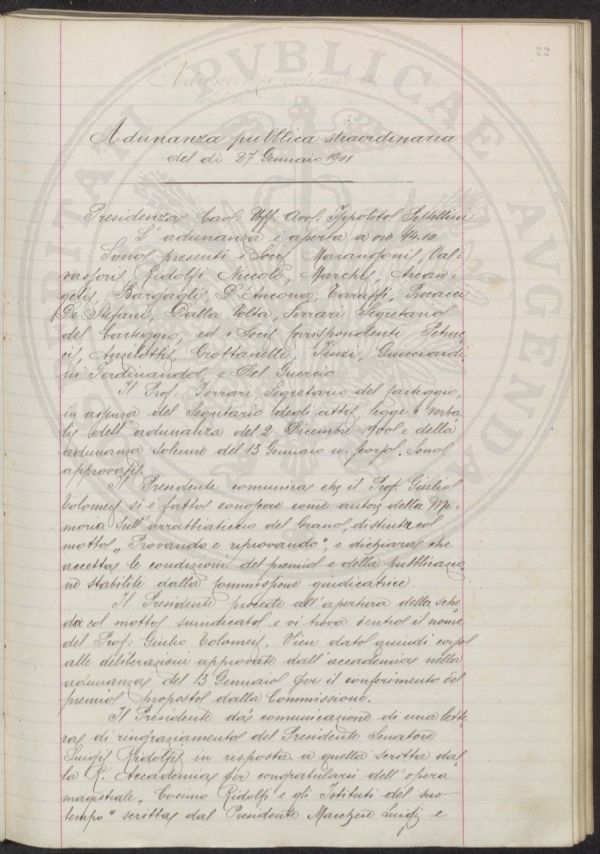 22
Adunanza pubblica straordinaria
del dì 27 Gennaio 1901
Presidenza Cav. Uff. Avv. Ippolito Pestellini
L'adunanza è aperta a ore 14.10
Sono presenti i Soci Marangoni, Val-
vassori, Ridolfi Niccolò, Marchi, Arcan-
geli, Bargagli, D'Ancona, Taruffi, Procacci
De Stefani, Dalla Volta, Ferrari Segretario
del Carteggio, ed i Soci Corrispondenti Petruc
ci, Anzelotti, Grottanelli, Tinzi, Guicciardi
ni Ferdinando, e Del Guercio
Il Prof. Ferrari Segretario del carteggio,
in assenza del Segretario degli atti, legge i verba
li dell'adunanza del 2 Dicembre 1900 e della
adunanza solenne del 13 Gennaio u. scorso. Sono
approvati.
Il Presidente comunica che il Prof. Giulio
Tolomei si è fatto conoscere come autore della Me-
moria sull'arrabbiaticcio del Grano, distinta col
motto "Provando e riprovando", e dichiara che
accetta le condizioni del premio e della pubblicazio
ne stabilite dalla Commissione giudicatrice.
Il Presidente procede all'apertura della sche
da col motto suindicato e vi trova dentro il nome
del Prof. Giulio Tolomei. Vien dato quindi corso
alle deliberazioni approvate dall'accademia nella
adunanza del 13 Gennaio per il conferimento del
premio proposto dalla Commissione.
Il Presidente dà comunicazione di una lette
ra di ringraziamento del Presidente Senatore
Luigi Ridolfi in risposta a quella scritta dal
la R. Accademia per congratularsi dell'opera
magistrale "Cosimo Ridolfi e gli Istituti del suo
tempo" scritta dal Presidente Marchese Luigi e
PVBLICAE
AVGENDAE